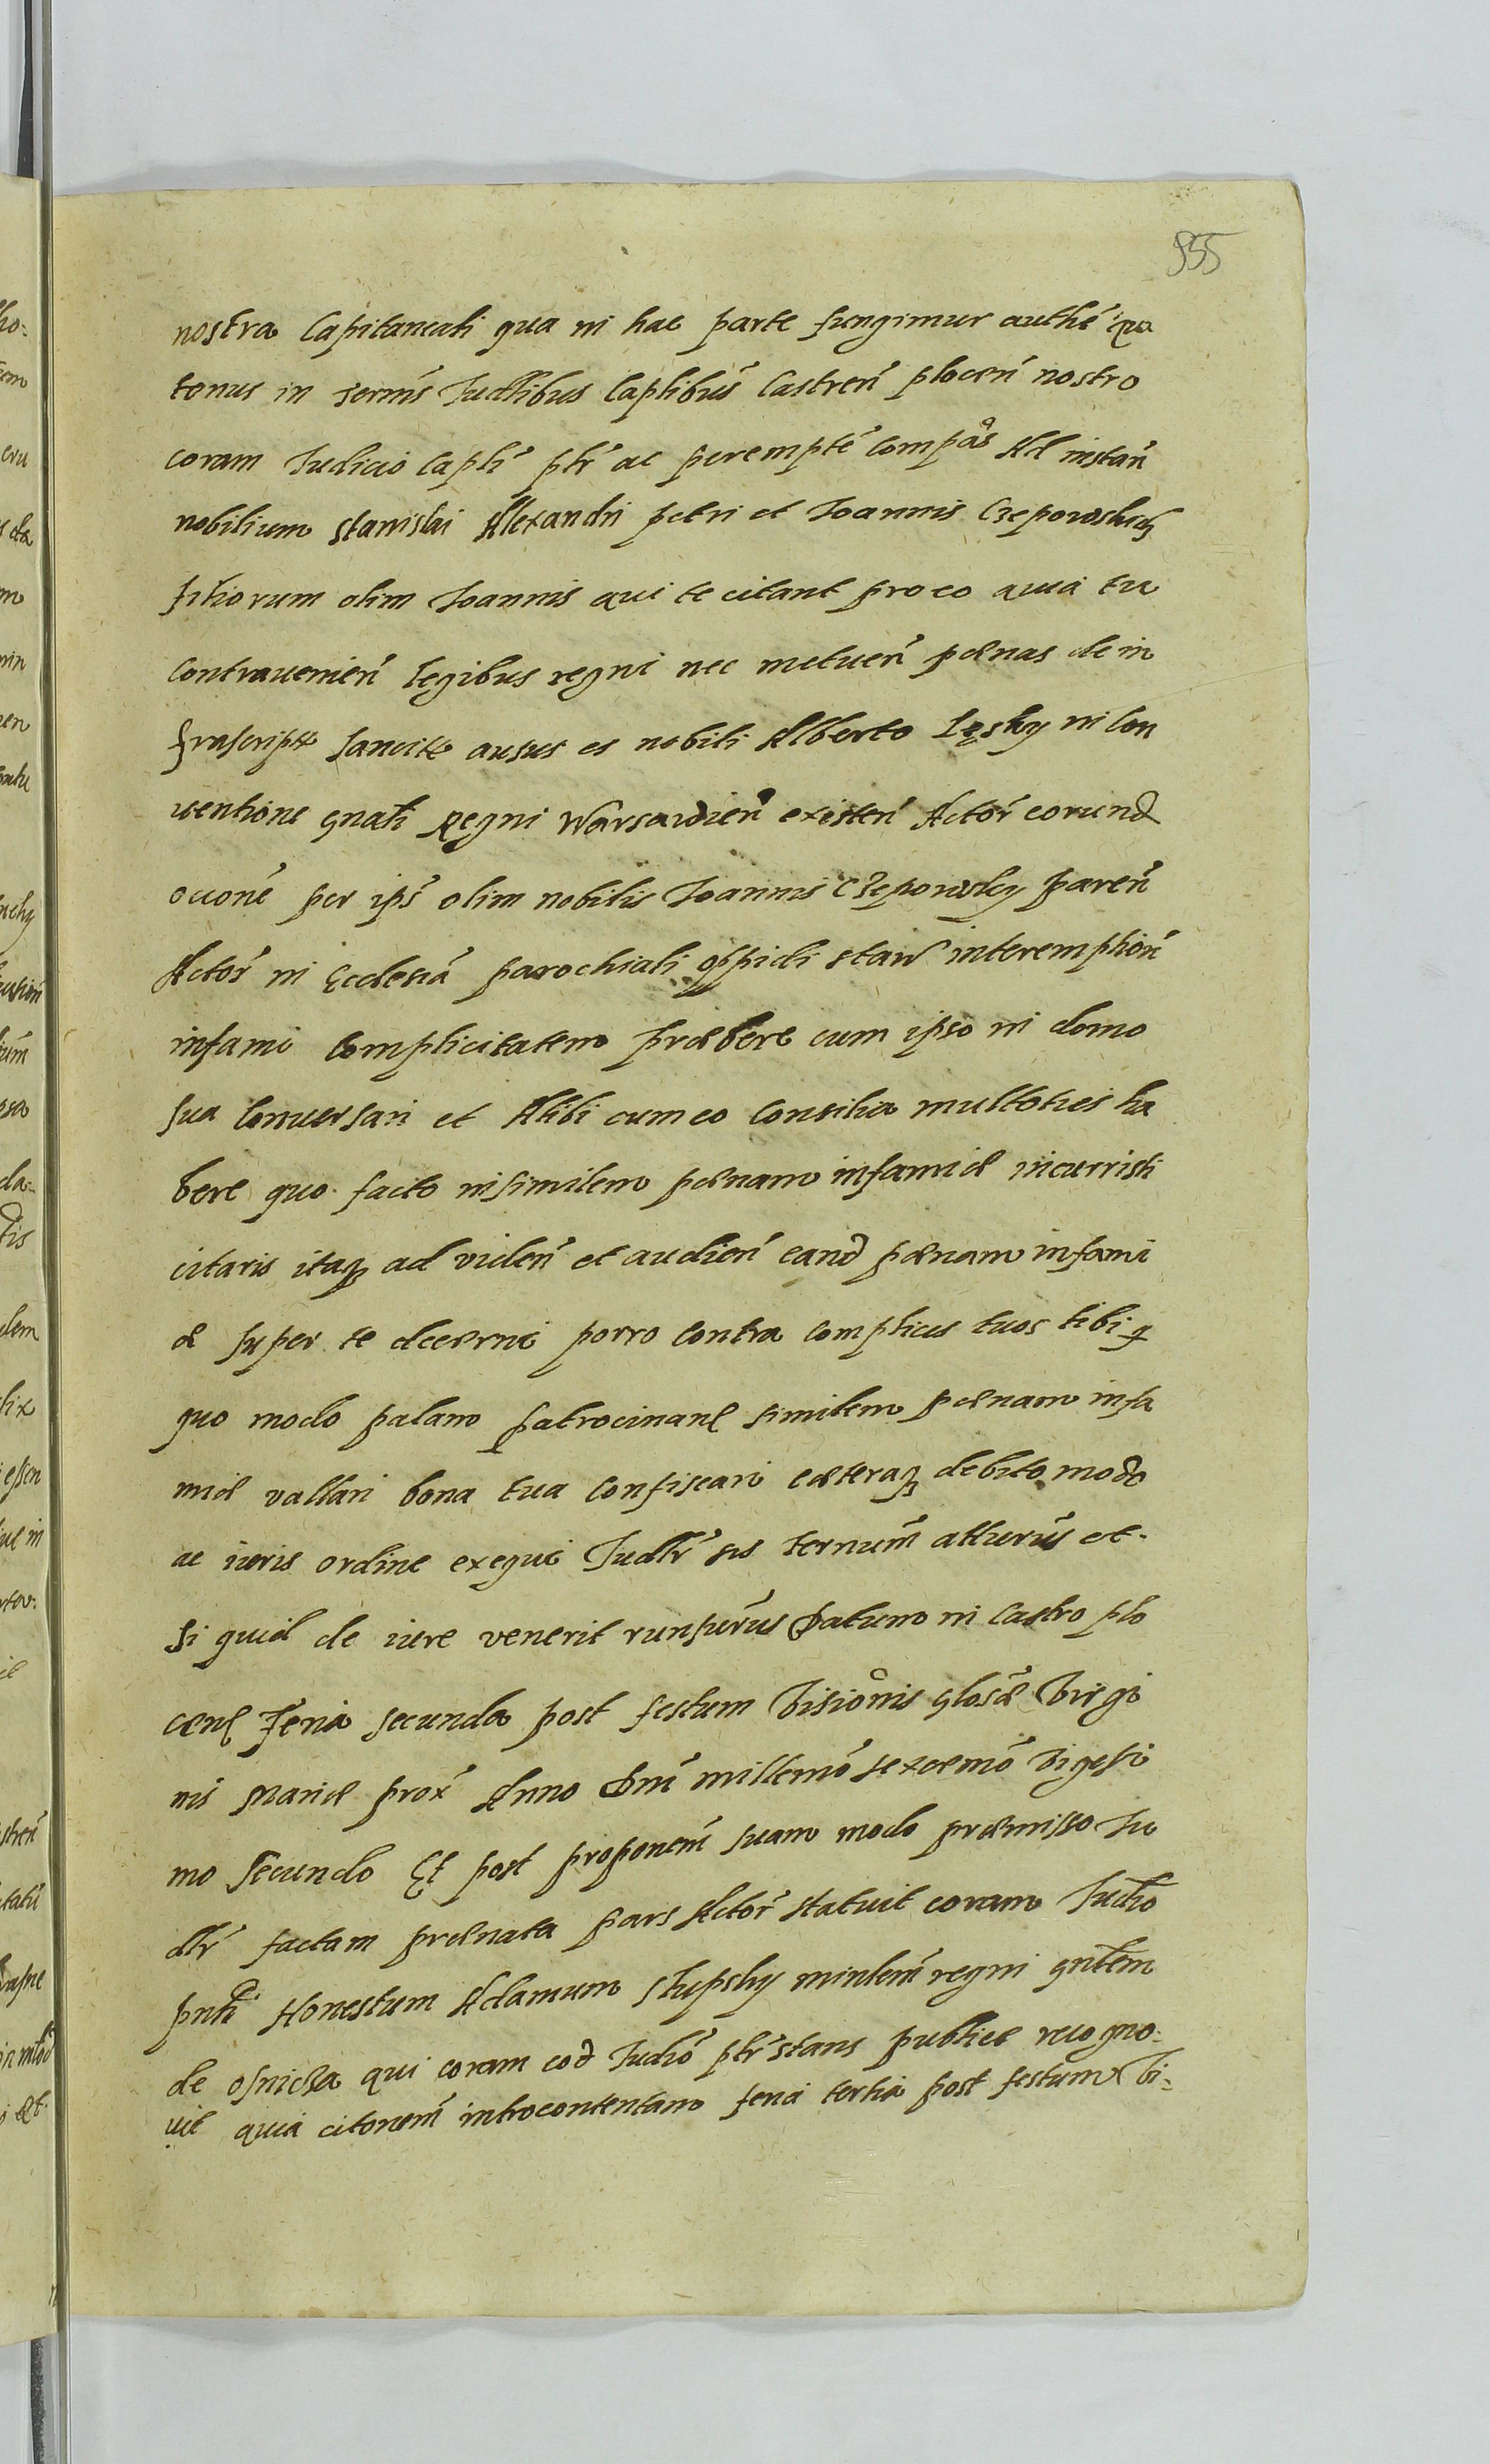 955
nostra Capitaneali qua in hac parte fungimur authē qua
tenus in termīs Judłibus Caplibūs Castreñ plocen̄ nostro
coram Judicio Caplī plr̄ ac perempte compās Ad instan̄
nobilium Stanislai Alexandri petri et Joannis Czeporowskich
filiorum olim Joannis qui te citant pro eo quia tu
Contraueniēn Legibus regni nec metuen̄ pænas de in
frascript sancitt ausus es nobili Alberto Lęsky in Con
uentione gnałi Regni Warsawień existen̄ Actōr eorund
occonē per ips̄ olim nobilis Joannis Czeporowsky paren̄
Actōr in Ecclesiā parochiali oppidi Staw interemption̄
infami Complicitatem præbere cum ipso in domo
sua Conuersari et Alibi cum eo Consilia multoties ha
bere quo facto in similem pænam infamiæ incurristi
citaris itaq ad viden̄ et audien̄ eand pænam infami
æ super te decerni porro contra complices tuos tibi q
quo modo palam patrocinan similem pænam infa
miæ vallari bona tua Confiscari cæteraq debito modo
ac iuris ordine exequi Judłr sis termm̄ atturūs et
si quid de iure venerit runsurūs Datum in Castro plo
cen Feria secunda post festum Visiōnis glosæ Virgi
nis Mariæ prox̄ Anno Dnī millemō sexcemō Vigesi
mo Secundo Et post proponem̄ suam modo præmisso Ju
dłr factam prænata pars Actōr statuit coram Judio
pnti Honestum Adamum Slupsky minlem̄ regni gnłem
de osnicza qui coram eod Judiō plr̄ stans publice recogno:
uit quia citonem̄ introcontentam feria tertia post festum Vi: